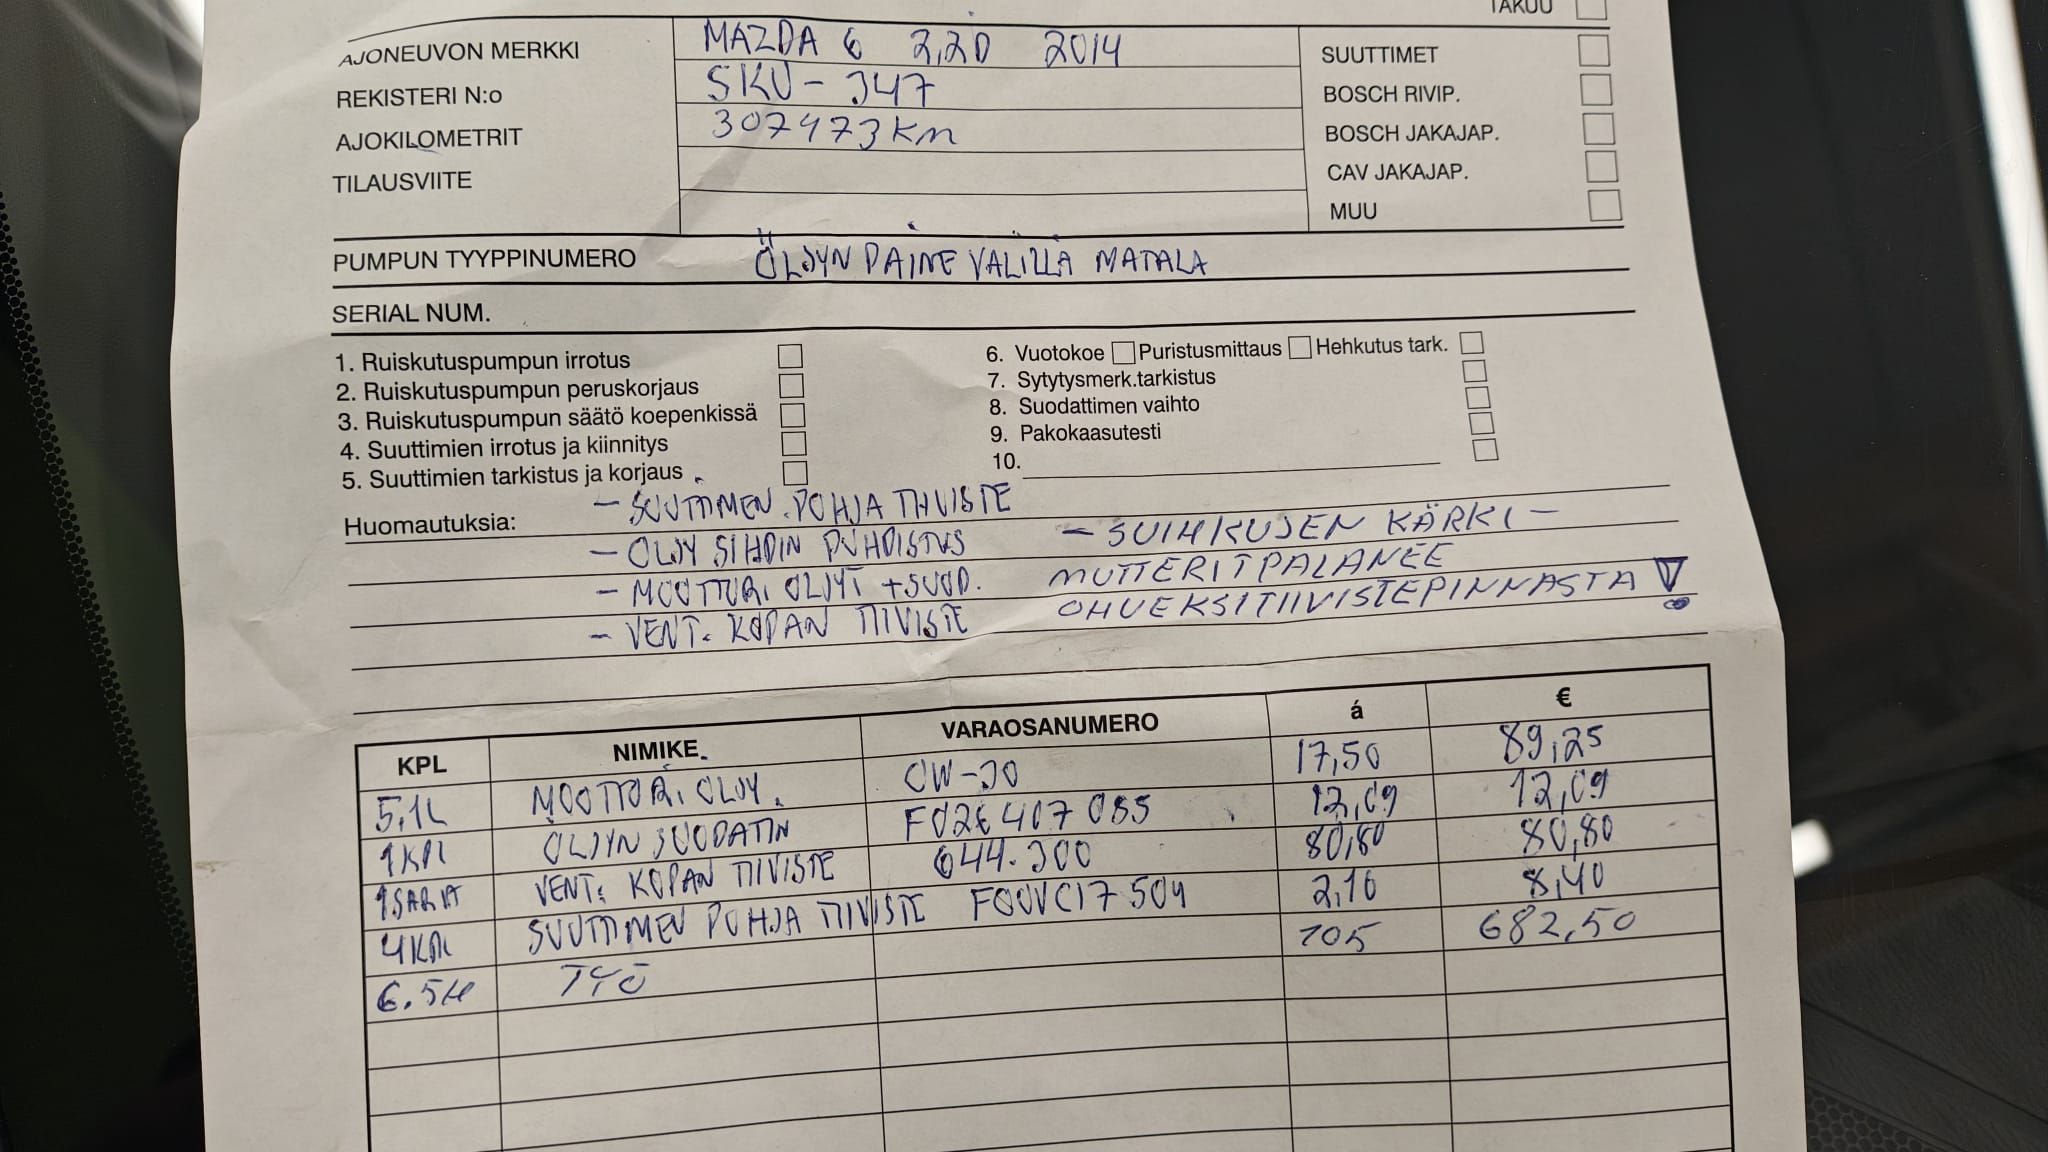 TAKUU
AJONEUVON MERKKI MAZDA 6 2,2D 2014 SUUTTIMET
REKISTERI N:o SKU-347 BOSCH RIVIP.
AJOKILOMETRIT 307473 KM BOSCH JAKAJAP.
TILAUSVIITE CAV JAKAJAP.
MUU
PUMPUN TYYPPINUMERO ÖLJYN PAINE VÄLILLÄ MATALA
SERIAL NUM.
1. Ruiskutuspumpun irrotus 6. Vuotokoe Puristusmittaus Hehkutus tark.
2. Ruiskutuspumpun peruskorjaus 7. Sytytysmerk.tarkistus
3. Ruiskutuspumpun säätö koepenkissä 8. Suodattimen vaihto
4. Suuttimien irrotus ja kiinnitys 9. Pakokaasutesti
5. Suuttimien tarkistus ja korjaus 10.
Huomautuksia: - SUUTTIMEN POHJA TIIVISTE
- ÖLJY SIHDIN PUHDISTUS - SUIHKUJEN KÄRKI -
- MOOTTORI ÖLJYT + SUOD. MUTTERIT PALANEE
- VENT. KOPAN TIIVISTE OHUEKSI TIIVISTEPINNASTA !
KPL NIMIKE VARAOSANUMERO á €
5,1L MOOTTORI ÖLJY 0W-30 17,50 89,25
1 KPL ÖLJYN SUODATIN F026407085 12,09 12,09
1 SARJA VENT. KOPAN TIIVISTE 644.300 80,80 80,80
4 KPL SUUTTIMEN POHJA TIIVISTE F00VC17504 2,10 8,40
6.5H TYÖ 105 682,50